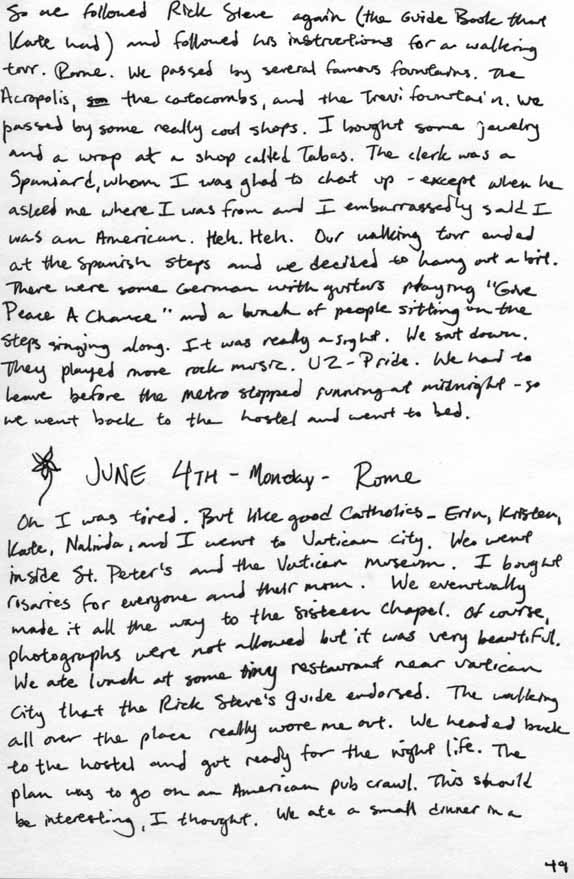 So we followed Rick Steve again (the Guide Book that
Kate had) and followed his instructions for a walking
tour. Rome. We passed by several famous fountains. The
Acropolis, the catocombs, and the Trevi fountain. We
passed by some really cool shops. I bought some jewelry
and a wrap at a shop called Tabas. The clerk was a
Spaniard, whom I was glad to chat up - except when he
asked me where I was from and I embarrassedly said I
was an American. Heh. Heh. Our walking tour ended
at the Spanish Steps and we decided to hang out a bit.
There were some German with guitars playing "Give
Peace A Chance" and a bunch of people sitting on the
steps singing along. It was really a sight. We sat down.
They played more rock music. U2 - Pride. We had to
leave before the metro stopped running at midnight - so
we went back to the hostel and went to bed.
JUNE 4TH - Monday - Rome
Oh I was tired. But like good Catholics - Erin, Kristen,
Kate, Nalinda, and I went to Vatican City. We went
inside St. Peter's and the Vatican museum. I bought
rosaries for everyone and their mom. We eventually
made it all the way to the sisteen Chapel. Of course,
photographs were not allowed but it was very beautiful.
We ate lunch at some tiny restaurant near Vatican
City that the Rick Steve's guide endorsed. The walking
all over the place really wore me out. We headed back
to the hostel and got ready for the night life. The
plan was to go on an American pub crawl. This should
be interesting, I thought. We ate a small dinner in a
49